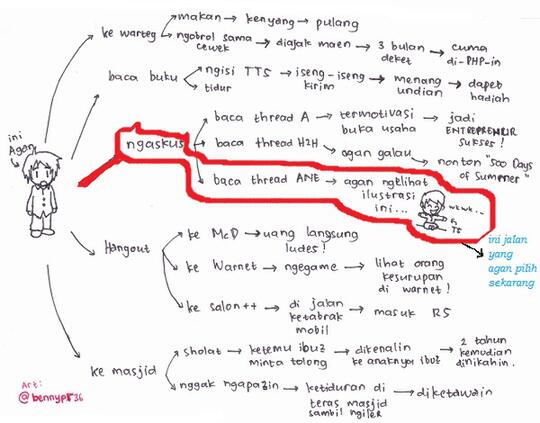 ini
Agan
ke warteg
makan → kenyang → pulang
ngobrol sama cewek → diajak maen → 3 bulan deket → cuma di-PHP-in
baca buku
ngisi TTS → iseng-iseng kirim → menang undian → dapet hadiah
tidur
ngaskus
baca thread A → termotivasi buka usaha → jadi ENTREPRENEUR SUKSES!
baca thread H2H → agan galau → nonton "500 Days of Summer"
baca thread ANE → agan ngelihat ilustrasi ini...
wkwk...
ini jalan
yang
agan pilih
sekarang
Hangout
ke McD → uang langsung ludes!
ke Warnet → ngegame → lihat orang kesurupan di warnet!
ke salon++ → di jalan ketabrak mobil → masuk RS
ke masjid
sholat → ketemu ibu2 minta tolong → dikenalin ke anaknya ibu2 → 2 tahun kemudian dinikahin.
nggak ngapa2in → ketiduran di teras masjid sambil ngiler → diketawain
Art: